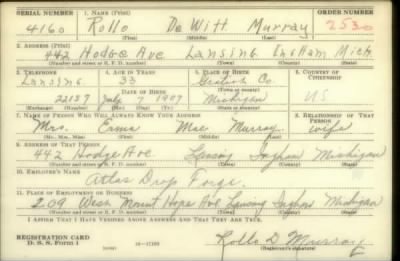 SERIAL NUMBER 1. NAME (Print) ORDER NUMBER
4160 Rollo De Witt Murray 2530
(First) (Middle) (Last)
2. ADDRESS (Print)
442 Hodge Ave Lansing Ingham Mich.
(Number and street or R. F. D. number) (Town) (County) (State)
3. TELEPHONE 4. AGE IN YEARS 5. PLACE OF BIRTH 6. COUNTRY OF CITIZENSHIP
Lansing 33 Gratiot Co
DATE OF BIRTH (Town or county)
22157 July 7 1907 Michigan US
(Exchange) (Number) (Mo.) (Day) (Yr.) (State or country)
7. NAME OF PERSON WHO WILL ALWAYS KNOW YOUR ADDRESS 8. RELATIONSHIP OF THAT PERSON
Mrs. Erma Mae Murray wife
(Mr., Mrs., Miss) (First) (Middle) (Last)
9. ADDRESS OF THAT PERSON
442 Hodge Ave Lansing Ingham Michigan
(Number and street or R. F. D. number) (Town) (County) (State)
10. EMPLOYER'S NAME
Atlas Drop Forge.
11. PLACE OF EMPLOYMENT OR BUSINESS
209 West Mount Hope Ave Lansing Ingham Michigan
(Number and street or R. F. D. number) (Town) (County) (State)
I AFFIRM THAT I HAVE VERIFIED ABOVE ANSWERS AND THAT THEY ARE TRUE.
REGISTRATION CARD
D. S. S. Form 1 (over) 16—17105 Rollo D. Murray
(Registrant's signature)